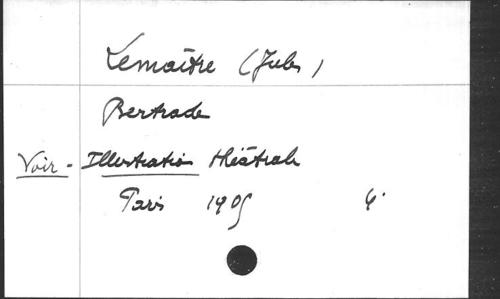 Lemaître (Jules)
Bertrade
Voir - Illustration théâtrale
Paris 1905 4°